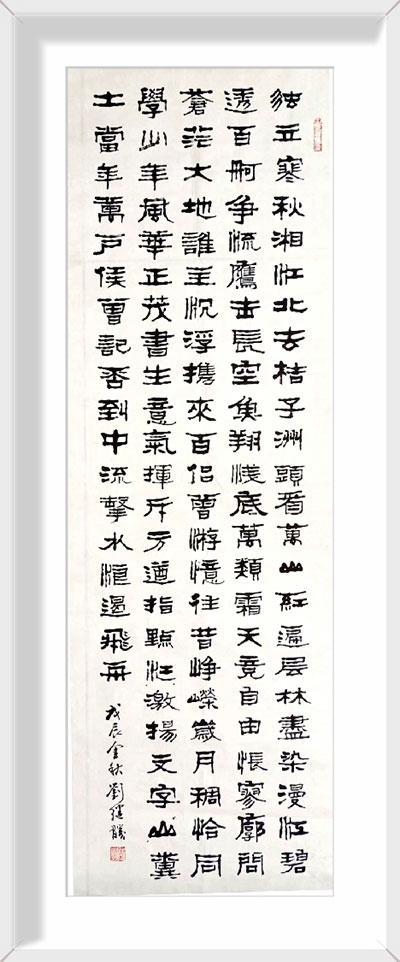 独立寒秋湘江北去桔子洲頭看萬山紅遍层林盡染漫江碧
透百舸争流鷹击長空魚翔浅底萬類霜天竟自由悵寥廓問
蒼茫大地誰主沉浮携來百侣曾游憶往昔崢嶸歲月稠恰同
學少年風華正茂書生意氣揮斥方遒指點江激揚文字山糞
土當年萬户侯曾記否到中流擊水浪遏飛舟
戊辰金秋劉繼勝